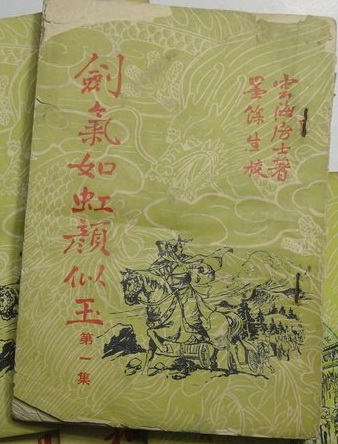 雲海居士著
墨餘生校
劍氣如虹顏似玉
第一集